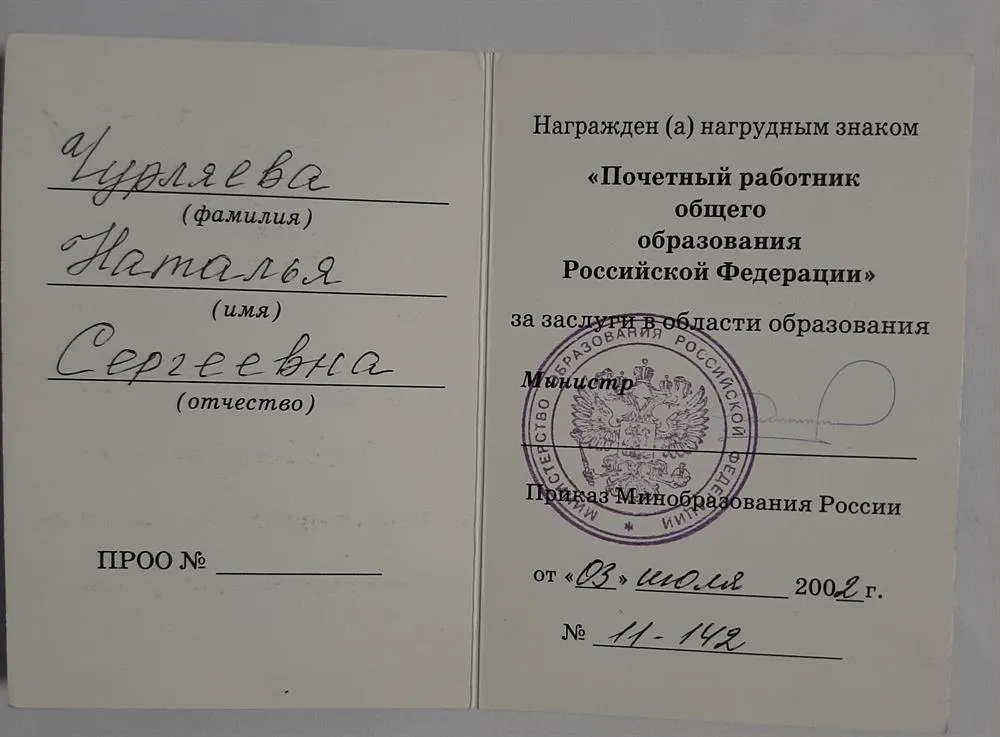 Чурляева
(фамилия)
Наталья
(имя)
Сергеевна
(отчество)
ПРОО №
Награжден (а) нагрудным знаком
«Почетный работник
общего
образования
Российской Федерации»
за заслуги в области образования
Министр
МИНИСТЕРСТВО ОБРАЗОВАНИЯ РОССИЙСКОЙ ФЕДЕРАЦИИ *
Приказ Минобразования России
от «03» июля 2002 г.
№ 11-142